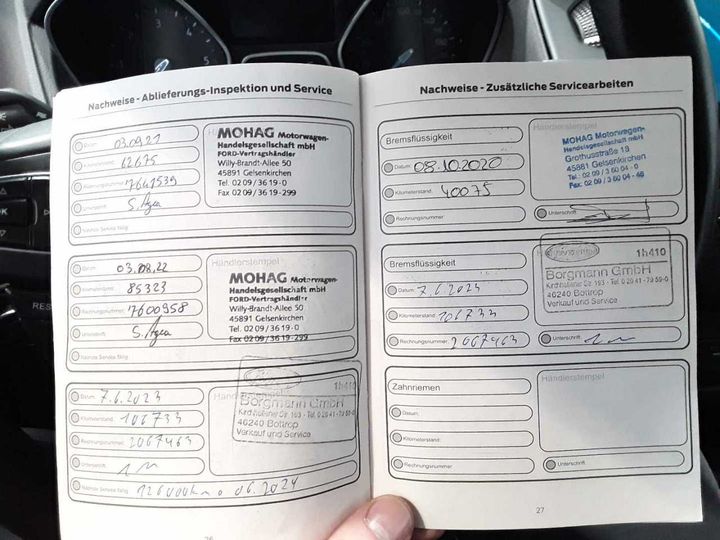 Nachweise - Ablieferungs-Inspektion und Service
Datum 03.09.21
Kilometerstand 62675
Rechnungsnummer 7647539
Unterschrift
Nächste Service fällig
MOHAG Motorwagen-
Handelsgesellschaft mbH
FORD-Vertragshändler
Willy-Brandt-Allee 50
45891 Gelsenkirchen
Tel. 02 09 / 36 19 - 0
Fax 02 09 / 36 19 - 299
Datum 03.08.22
Kilometerstand 85323
Rechnungsnummer 7600958
Unterschrift
Nächste Service fällig
Händlerstempel
MOHAG Motorwagen-
Handelsgesellschaft mbH
FORD-Vertragshändler
Willy-Brandt-Allee 50
45891 Gelsenkirchen
Tel. 02 09 / 36 19 - 0
Fax 02 09 / 36 19 - 299
Datum: 7.6.2023
Kilometerstand: 106733
Rechnungsnummer: 2067463
Unterschrift
Nächste Service fällig: 126000km o 06.2024
Händlerstempel
1h410
Borgmann GmbH
46240 Bottrop
Verkauf und Service
Nachweise - Zusätzliche Servicearbeiten
Bremsflüssigkeit
Datum: 08.10.2020
Kilometerstand: 40075
Rechnungsnummer:
Händlerstempel
MOHAG Motorwagen-
Handelsgesellschaft mbH
Grothusstraße 13
45881 Gelsenkirchen
Unterschrift:
Bremsflüssigkeit
Datum: 7.6.2023
Kilometerstand: 106733
Rechnungsnummer: 2067463
1h410
Borgmann GmbH
46240 Bottrop
Verkauf und Service
Unterschrift:
Zahnriemen
Datum:
Kilometerstand:
Rechnungsnummer:
Händlerstempel
Unterschrift:
27